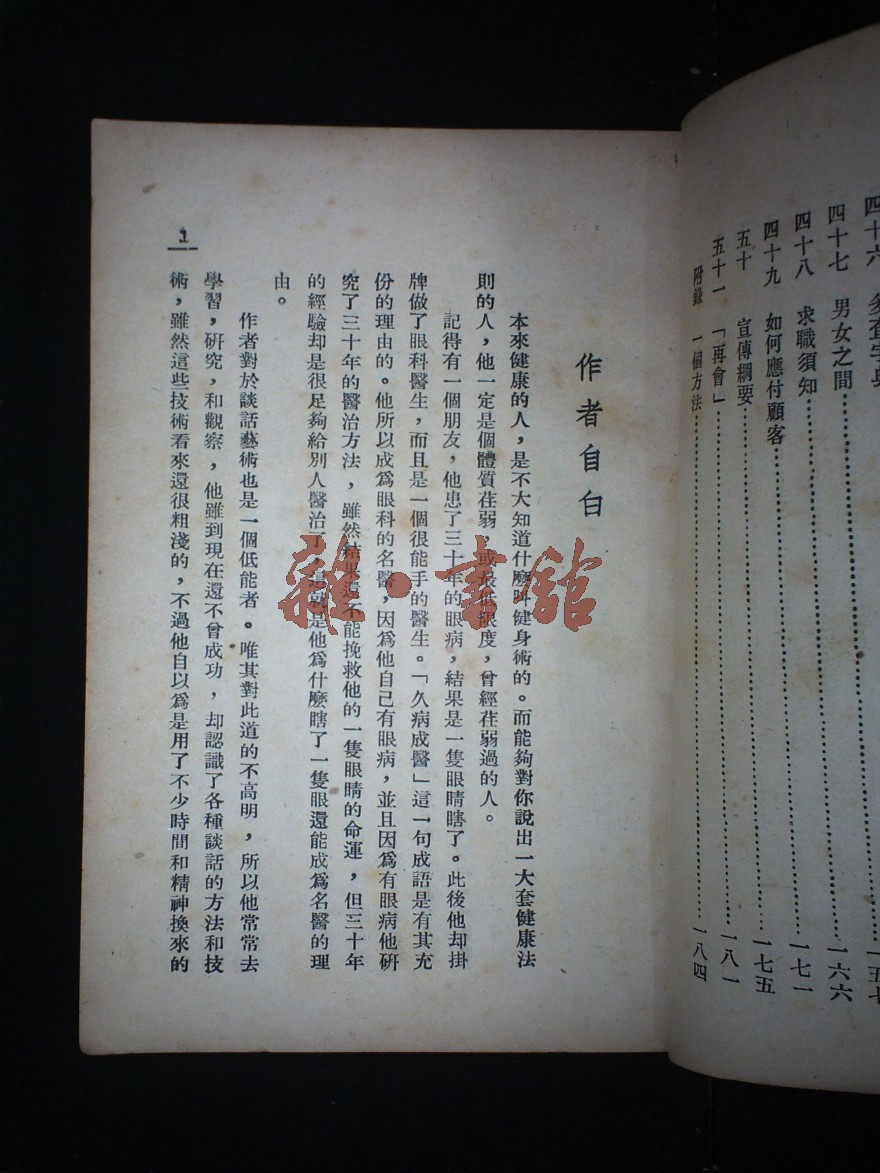 四十六 多查字典……一五七
四十七 男女之間……一六六
四十八 求職須知……一七一
四十九 如何應付顧客……一七五
五十 宣傳綱要……一八一
五十一 「再會」……一八四
附錄 一個方法
作者自白
本來健康的人，是不大知道什麼叫健身術的。而能夠對你說出一大套健康法
則的人，他一定是個體質荏弱，或最低限度，曾經荏弱過的人。
記得有一個朋友，他患了三十年的眼病，結果是一隻眼睛瞎了。此後他却掛
牌做了眼科醫生，而且是一個很能手的醫生。「久病成醫」這一句成語是有其充
份的理由的。他所以成爲眼科的名醫，因爲他自己有眼病，並且因爲有眼病他研
究了三十年的醫治方法，雖然結果還不能挽救他的一隻眼睛的命運，但三十年
的經驗却是很足夠給別人醫治了，這就是他爲什麼瞎了一隻眼還能成爲名醫的理
由。
作者對於談話藝術也是一個低能者。唯其對此道的不高明，所以他常常去
學習，研究，和觀察，他雖到現在還不曾成功，却認識了各種談話的方法和技
術，雖然這些技術看來還很粗淺的，不過他自以爲是用了不少時間和精神換來的
1
雜·書館